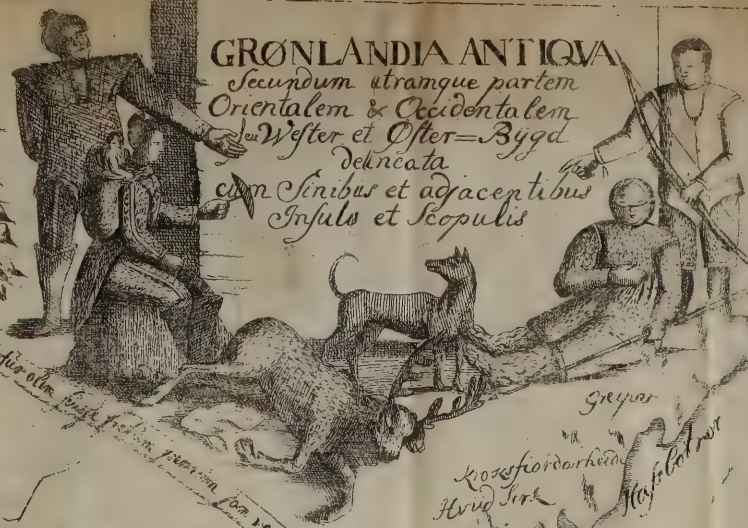 GRØNLANDIA ANTIQVA
Secundum utramque partem
Orientalem & Occidentalem
seu Wester et Øster=Bÿgd
delineata
cum Sinibus et adjacentibus
Insulis et Scopulis
Greipar
Krossfiordarheide
Hvid Serk